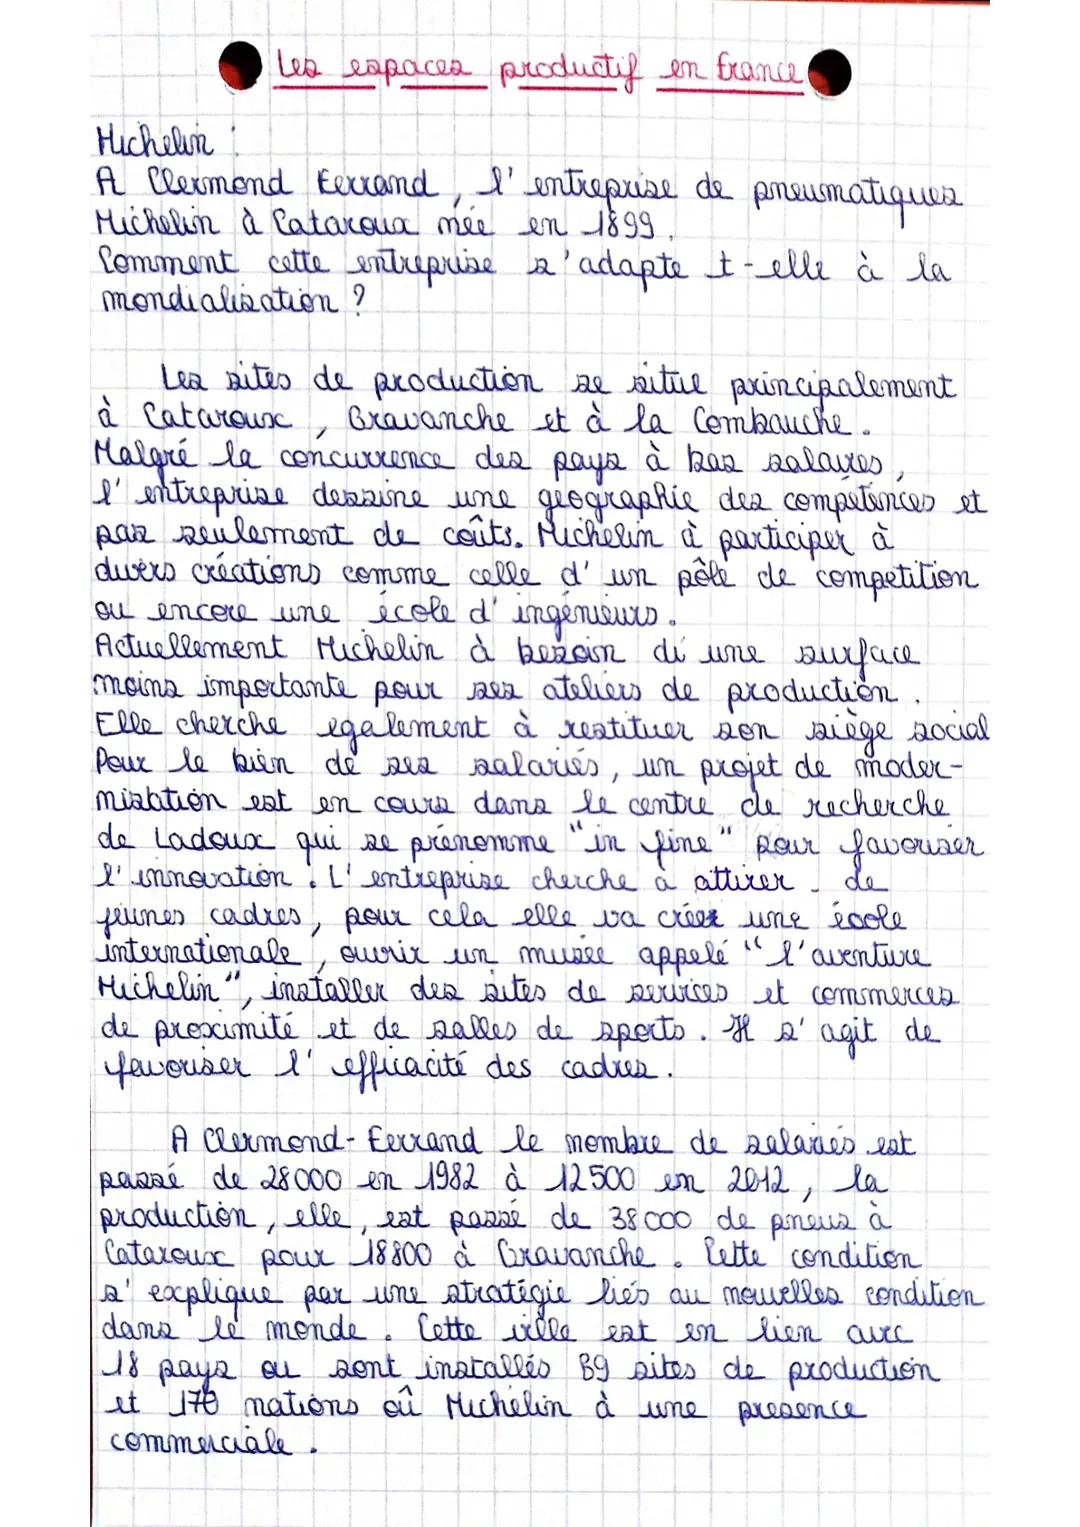 Les espaces productif en france
Michelin :
A Clermond Ferrand, l'entreprise de pneumatiques
Michelin à Cataroux née en 1899.
Comment cette entreprise s'adapte t-elle à la
mondialisation ?
Les sites de production se situe principalement
à Cataroux, Gravanche et à la Combauche.
Malgré la concurrence des pays à bas salaires,
l'entreprise dessine une géographie des compétences et
pas seulement de coûts. Michelin à participer à
divers créations comme celle d'un pôle de competition
ou encore une école d'ingénieurs.
Actuellement Michelin à besoin d'une surface
moins importante pour ses ateliers de production.
Elle cherche egalement à restituer son siège social
Pour le bien de ses salariés, un projet de moder-
nisation est en cours dans le centre de recherche
de Ladoux qui se prénomme "in fine" pour favoriser
l'innovation. L'entreprise cherche à attirer de
jeunes cadres, pour cela elle va créer une école
internationale, ouvrir un musée appelé "l'aventure
Michelin", installer des sites de services et commerces
de proximité et de salles de sports. Il s'agit de
favoriser l'efficacité des cadres.
A Clermond-Ferrand le nombre de salariés est
passé de 28000 en 1982 à 12500 en 2012, la
production, elle, est passé de 38000 de pneus à
Cataroux pour 18800 à Gravanche. Cette condition
s'explique par une stratégie liés au nouvelles condition
dans le monde. Cette ville est en lien avec
18 pays ou sont installés 89 sites de production
et 170 nations où Michelin à une presence
commerciale.